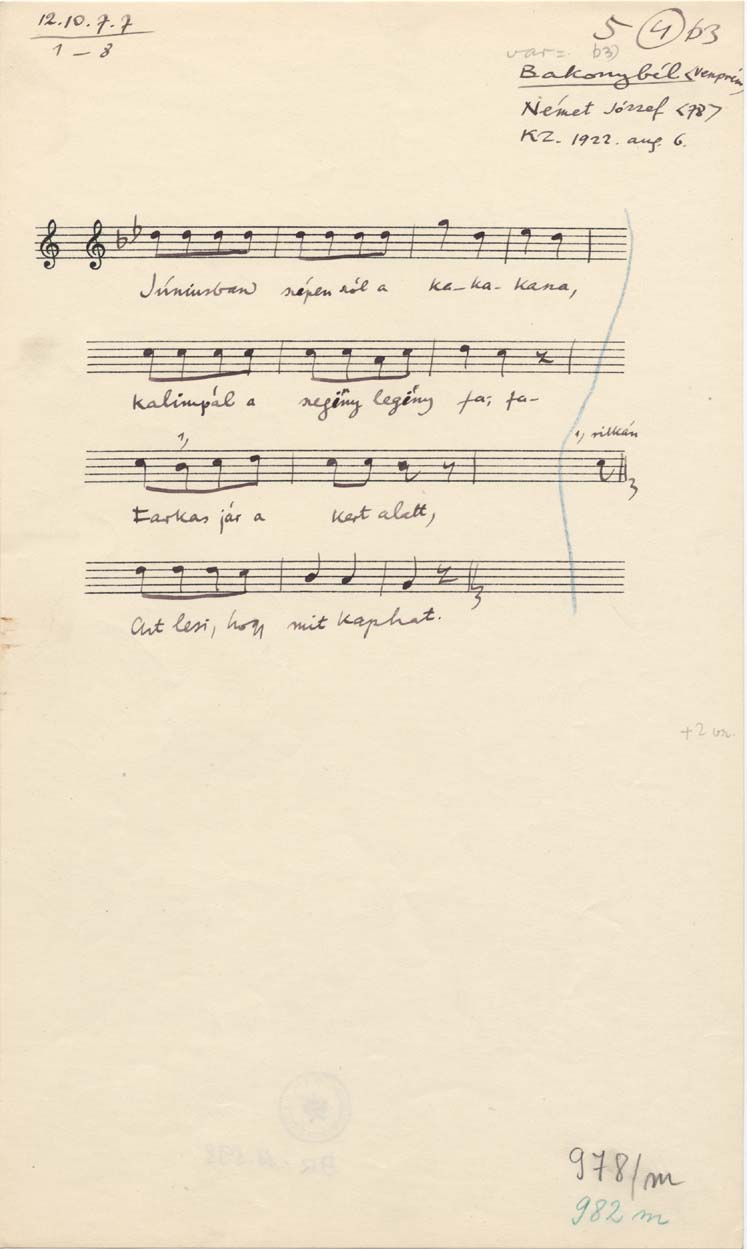 12.10.7.7
1 – 8
5 4 b3
var = b3)
Bakonybél <Veszprém>
Német József <78>
KZ. 1922. aug. 6.
Júniusban szépen szól a ka-ka-kasa,
Kalimpál a szegény legény fa, fa-
1, 1, ritkán
Farkas jár a kert alatt,
Azt lesi, hogy mit kaphat.
978/m
982 m